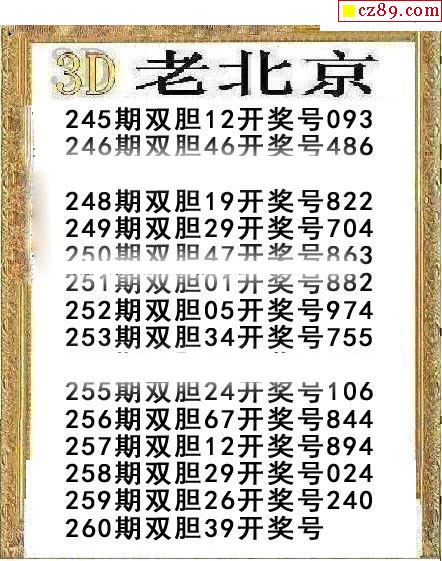 cz89.com
3D 老北京
245期双胆12开奖号093
246期双胆46开奖号486
248期双胆19开奖号822
249期双胆29开奖号704
250期双胆47开奖号863
251期双胆01开奖号882
252期双胆05开奖号974
253期双胆34开奖号755
255期双胆24开奖号106
256期双胆67开奖号844
257期双胆12开奖号894
258期双胆29开奖号024
259期双胆26开奖号240
260期双胆39开奖号